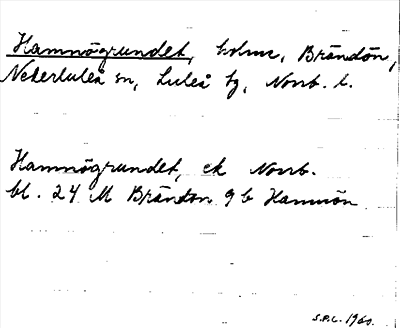 Hamnögrundet, holme, Brändön,
Nederluleå sn, Luleå tg, Norrb. l.
Hamnögrundet, ek Norrb.
bl. 24 M Brändon 9 b Hamnön
S.P.L. 1960.